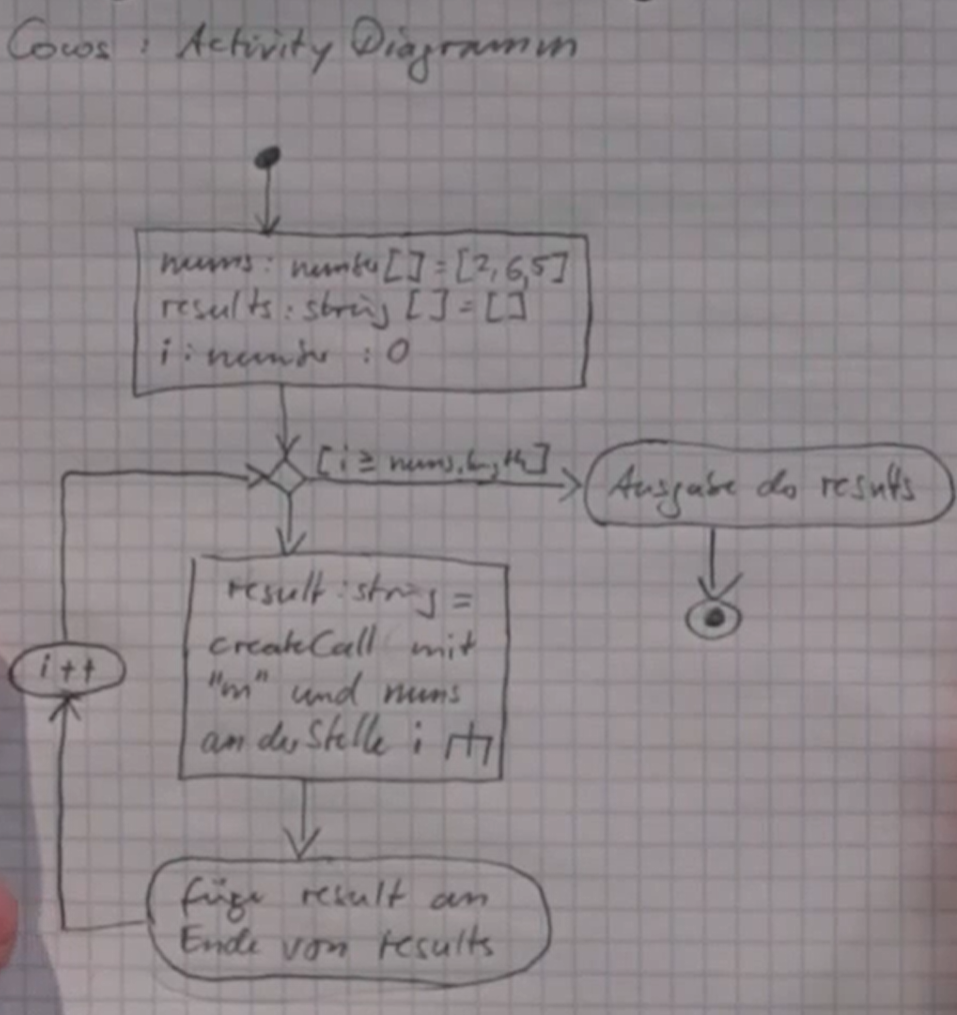 Cocos : Activity Diagramm
nums: number[] = [2,6,5]
results: string[] = []
i: number : 0
[i ≥ nums.length]
Ausgabe do results
result: string =
createCall mit
"m" und nums
an der Stelle i
i++
füge result an
Ende von results